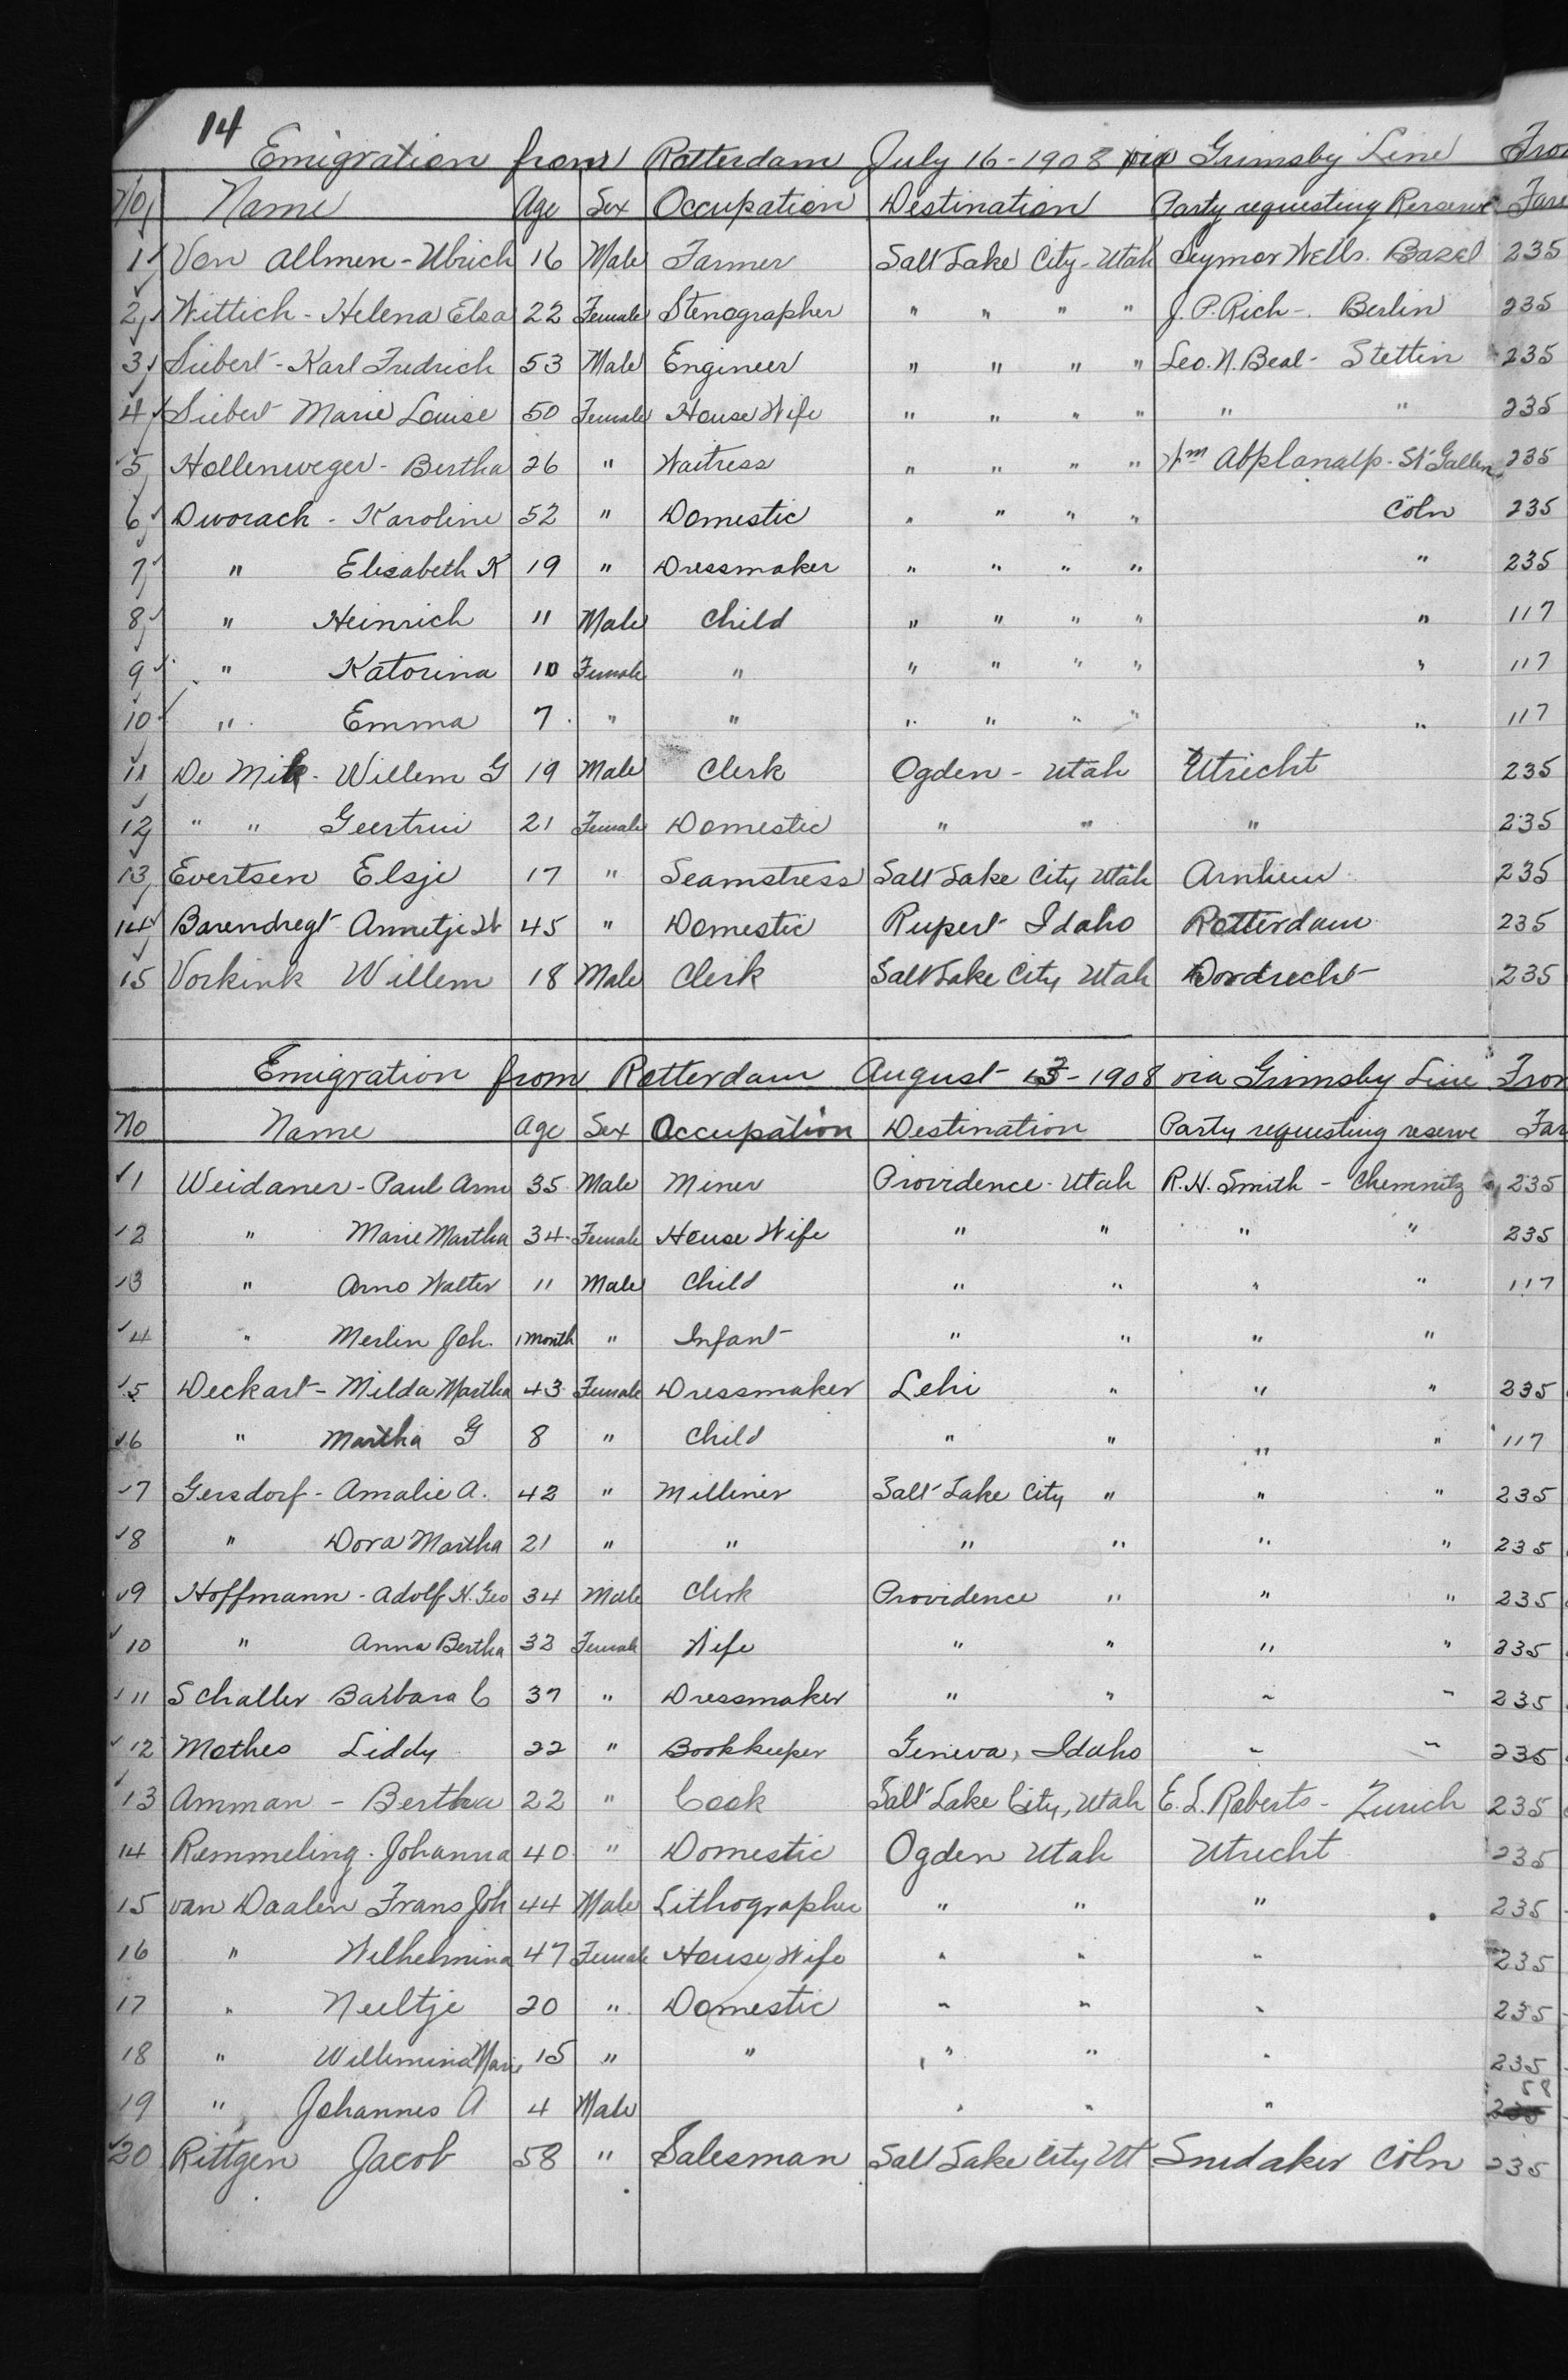 14
Emigration from Rotterdam July 16-1908 via Grimsby Line
No Name Age Sex Occupation Destination Party requesting Reserve Fare
1 Von Allmen - Ulrich 16 Male Farmer Salt Lake City - Utah Seymor Wells. Basel 235
2 Wittich - Helena Elsa 22 Female Stenographer " " " " J. P. Rich - Berlin 235
3 Siebert - Karl Fredrich 53 Male Engineer " " " " Leo. N. Beal - Stettin 235
4 Siebert Marie Louise 50 Female House Wife " " " " " " 235
5 Hollenweger - Bertha 26 " Waitress " " " " Wm Abplanalp - St Gallen 235
6 Dworach - Karoline 52 " Domestic " " " " Cöln 235
7 " Elisabeth K 19 " Dressmaker " " " " " 235
8 " Heinrich 11 Male Child " " " " " 117
9 " Katorina 10 Female " " " " " " 117
10 " Emma 7 " " " " " " " 117
11 De Mik - Willem G 19 Male Clerk Ogden - Utah Utrecht 235
12 " " Geertrui 21 Female Domestic " " " 235
13 Evertsen Elsje 17 " Seamstress Salt Lake City Utah Arnhem 235
14 Barendregt Annetje 45 " Domestic Rupert Idaho Rotterdam 235
15 Vorkink Willem 18 Male Clerk Salt Lake City Utah Dordrecht 235
Emigration from Rotterdam August 13 - 1908 via Grimsby Line
No Name Age Sex Occupation Destination Party requesting reserve
1 Weidaner - Paul Arno 35 Male Miner Providence - Utah R. H. Smith - Chemnitz 235
2 " Marie Martha 34 Female House Wife " " " " 235
3 " Arno Walter 11 Male Child " " " " 117
4 " Merlin Joh. 1 month " Infant " " " "
5 Deckart - Milda Martha 43 Female Dressmaker Lehi " " " 235
6 " Martha G 8 " Child " " " " 117
7 Gersdorf - Amalie A. 42 " Milliner Salt Lake City " " " 235
8 " Dora Martha 21 " " " " " " 235
9 Hoffmann - Adolf H. Geo 34 Male Clerk Providence " " " 235
10 " Anna Bertha 32 Female Wife " " " " 235
11 Schaller Barbara C 37 " Dressmaker " " " " 235
12 Mothes Liddy 22 " Bookkeeper Geneva, Idaho " " 235
13 Amman - Bertha 22 " Cook Salt Lake City, Utah E. L. Roberts - Zurich 235
14 Remmeling - Johanna 40 " Domestic Ogden Utah Utrecht 235
15 van Daalen Frans Joh 44 Male Lithographer " " " 235
16 " Wilhelmina 47 Female House Wife " " " 235
17 " Neeltje 20 " Domestic " " " 235
18 " Willemina Marie 15 " " " " " 235
19 " Johannes A 4 Male " " " 58
20 Rittgen Jacob 58 " Salesman Salt Lake City Ut Snedaker Cöln 235